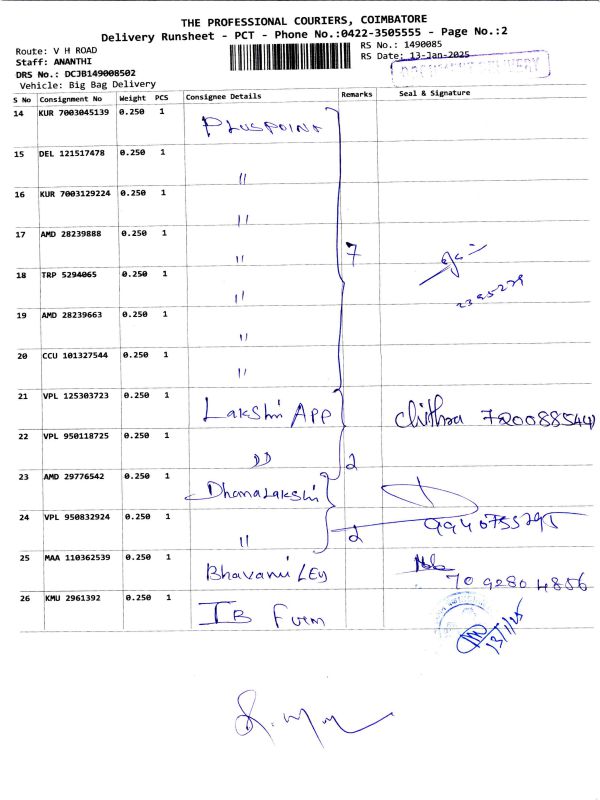 THE PROFESSIONAL COURIERS, COIMBATORE
Delivery Runsheet - PCT - Phone No.:0422-3505555 - Page No.:2
Route: V H ROAD
RS No.: 1490085
Staff: ANANTHI
RS Date: 13-Jan-2025
DRS No.: DCJB149008502
Vehicle: Big Bag Delivery
S No Consignment No Weight PCS Consignee Details Remarks Seal & Signature
14 KUR 7003045139 0.250 1 PLUSPOINT
15 DEL 121517478 0.250 1 "
16 KUR 7003129224 0.250 1 "
17 AMD 28239888 0.250 1 " 7
18 TRP 5294065 0.250 1 "
19 AMD 28239663 0.250 1 "
20 CCU 101327544 0.250 1 "
21 VPL 125303723 0.250 1 Lakshmi APP Chithra
22 VPL 950118725 0.250 1 " 2
23 AMD 29776542 0.250 1 DhanaLakshmi
24 VPL 950832924 0.250 1 " 2
25 MAA 110362539 0.250 1 Bhavani 709280 4856
26 KMU 2961392 0.250 1
13/1/25